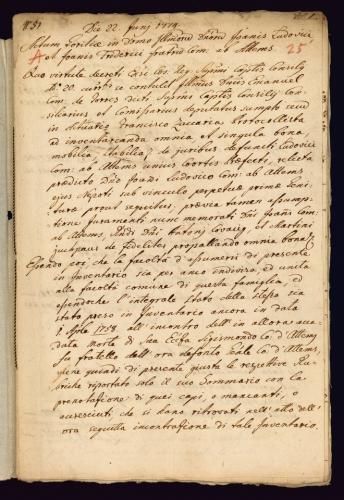 Die 22. Junj 1779.
Actum Goritiæ in Domo Illmorum Dnorum Joanis Ludovici
A et Joannis Friderici fratrum Com: ab Attems. 25
Quo virtute decreti Cæs: Reg: Supmi Capitis Consilij
se contulit Illmus Dnus Emanuel
Com: de Torres dicti Supmi Capitis Consilij Con-
siliarius et Comissarius deputatus sumpto secum
in Actuarium Francisco Zuccaria Protocollista
ad inventarizanda omnia et singula bona,
mobilia, stabilia, de juribus defuncti Ludovici
Com: ab Attems relicta
prædicto Dno Joanni Ludovico Com: ab Attems
ejus Nepoti sub vinculo perpetuæ primæ Geni-
turæ prout sequitur, prævia tamen assump-
tione juramenti nunc memorati Dni Joannis Com:
ab Attems, Antonij et Martini
de fideliter propallando omnia bona.
Essendo poi che la facoltà d'assumersi di presente
in Inventario sia per anco indivisa, ed unita
alla facoltà comune di questa famiglia, ed
essendoche l'integrale stato della stessa sia
stato preso in Inventario ancora in data
1758 all'incontro dell'in allora accu-
data morte di Sua Ecca Sigismondo Co: d'Attems
fu fratello dell'ora defonto Co: d'Attems,
viene quindi di presente giusta le respettive Ru-
briche riportato solo il suo Sommario con la
prenotazione di quei capi, o mancanti, o
accresciuti che si sono ritrovati nell'atto dell'
ora seguita incontrazione di tale Inventario.